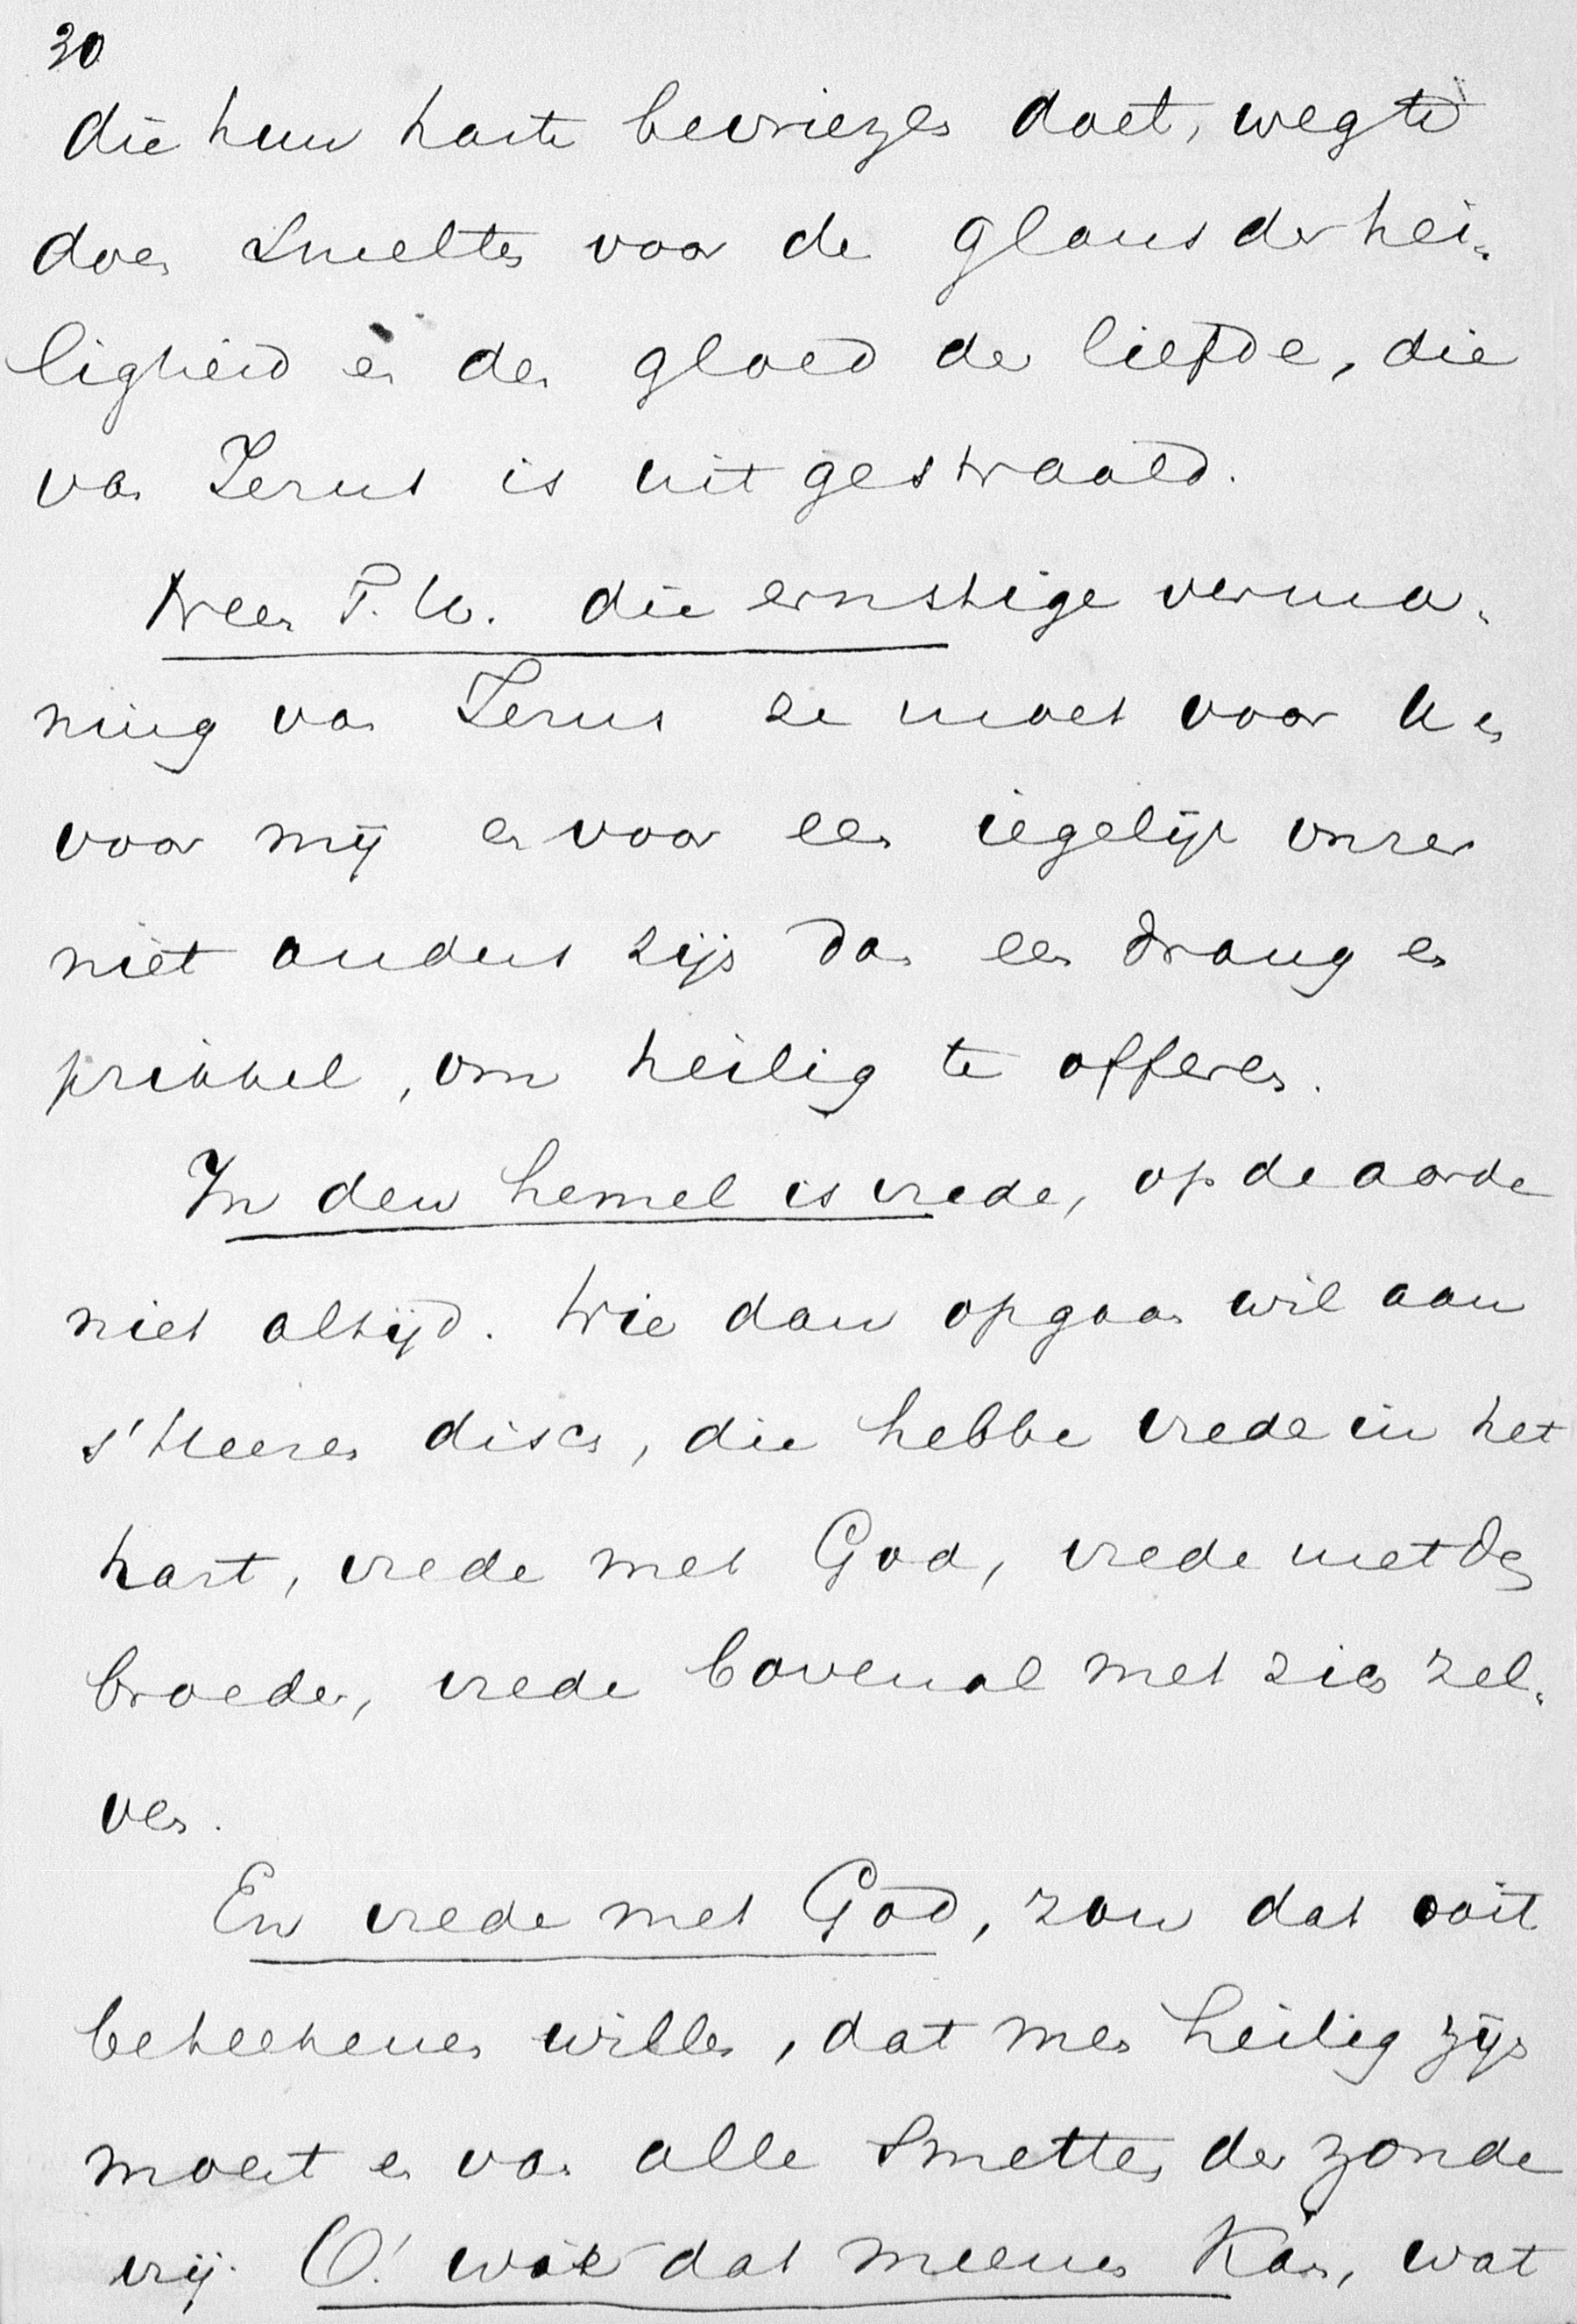 20
die hun harte bevriezen doet, weg te
doen smelten voor de glans der hei-
ligheid en den gloed der liefde, die
van Jezus is uitgestraald.
Neen T. U. die ernstige verma-
ning van Jezus ze moet voor U en
voor mij en voor een iegelijk onzer
niet anders zijn dan een drang en
prikkel, om heilig te offeren.
In den hemel is vrede, op de aarde
niet altijd. Wie dan opgaan wil aan
s'Heeren disch, die hebbe vrede in het
hart, vrede met God, vrede met den
broeder, vrede bovenal met zich zel-
ven.
En vrede met God, zou dat ooit
beteekenen willen, dat men heilig zijn
moest en van alle smetten der zonde
vrij. O! wie dat meenen kan, wat